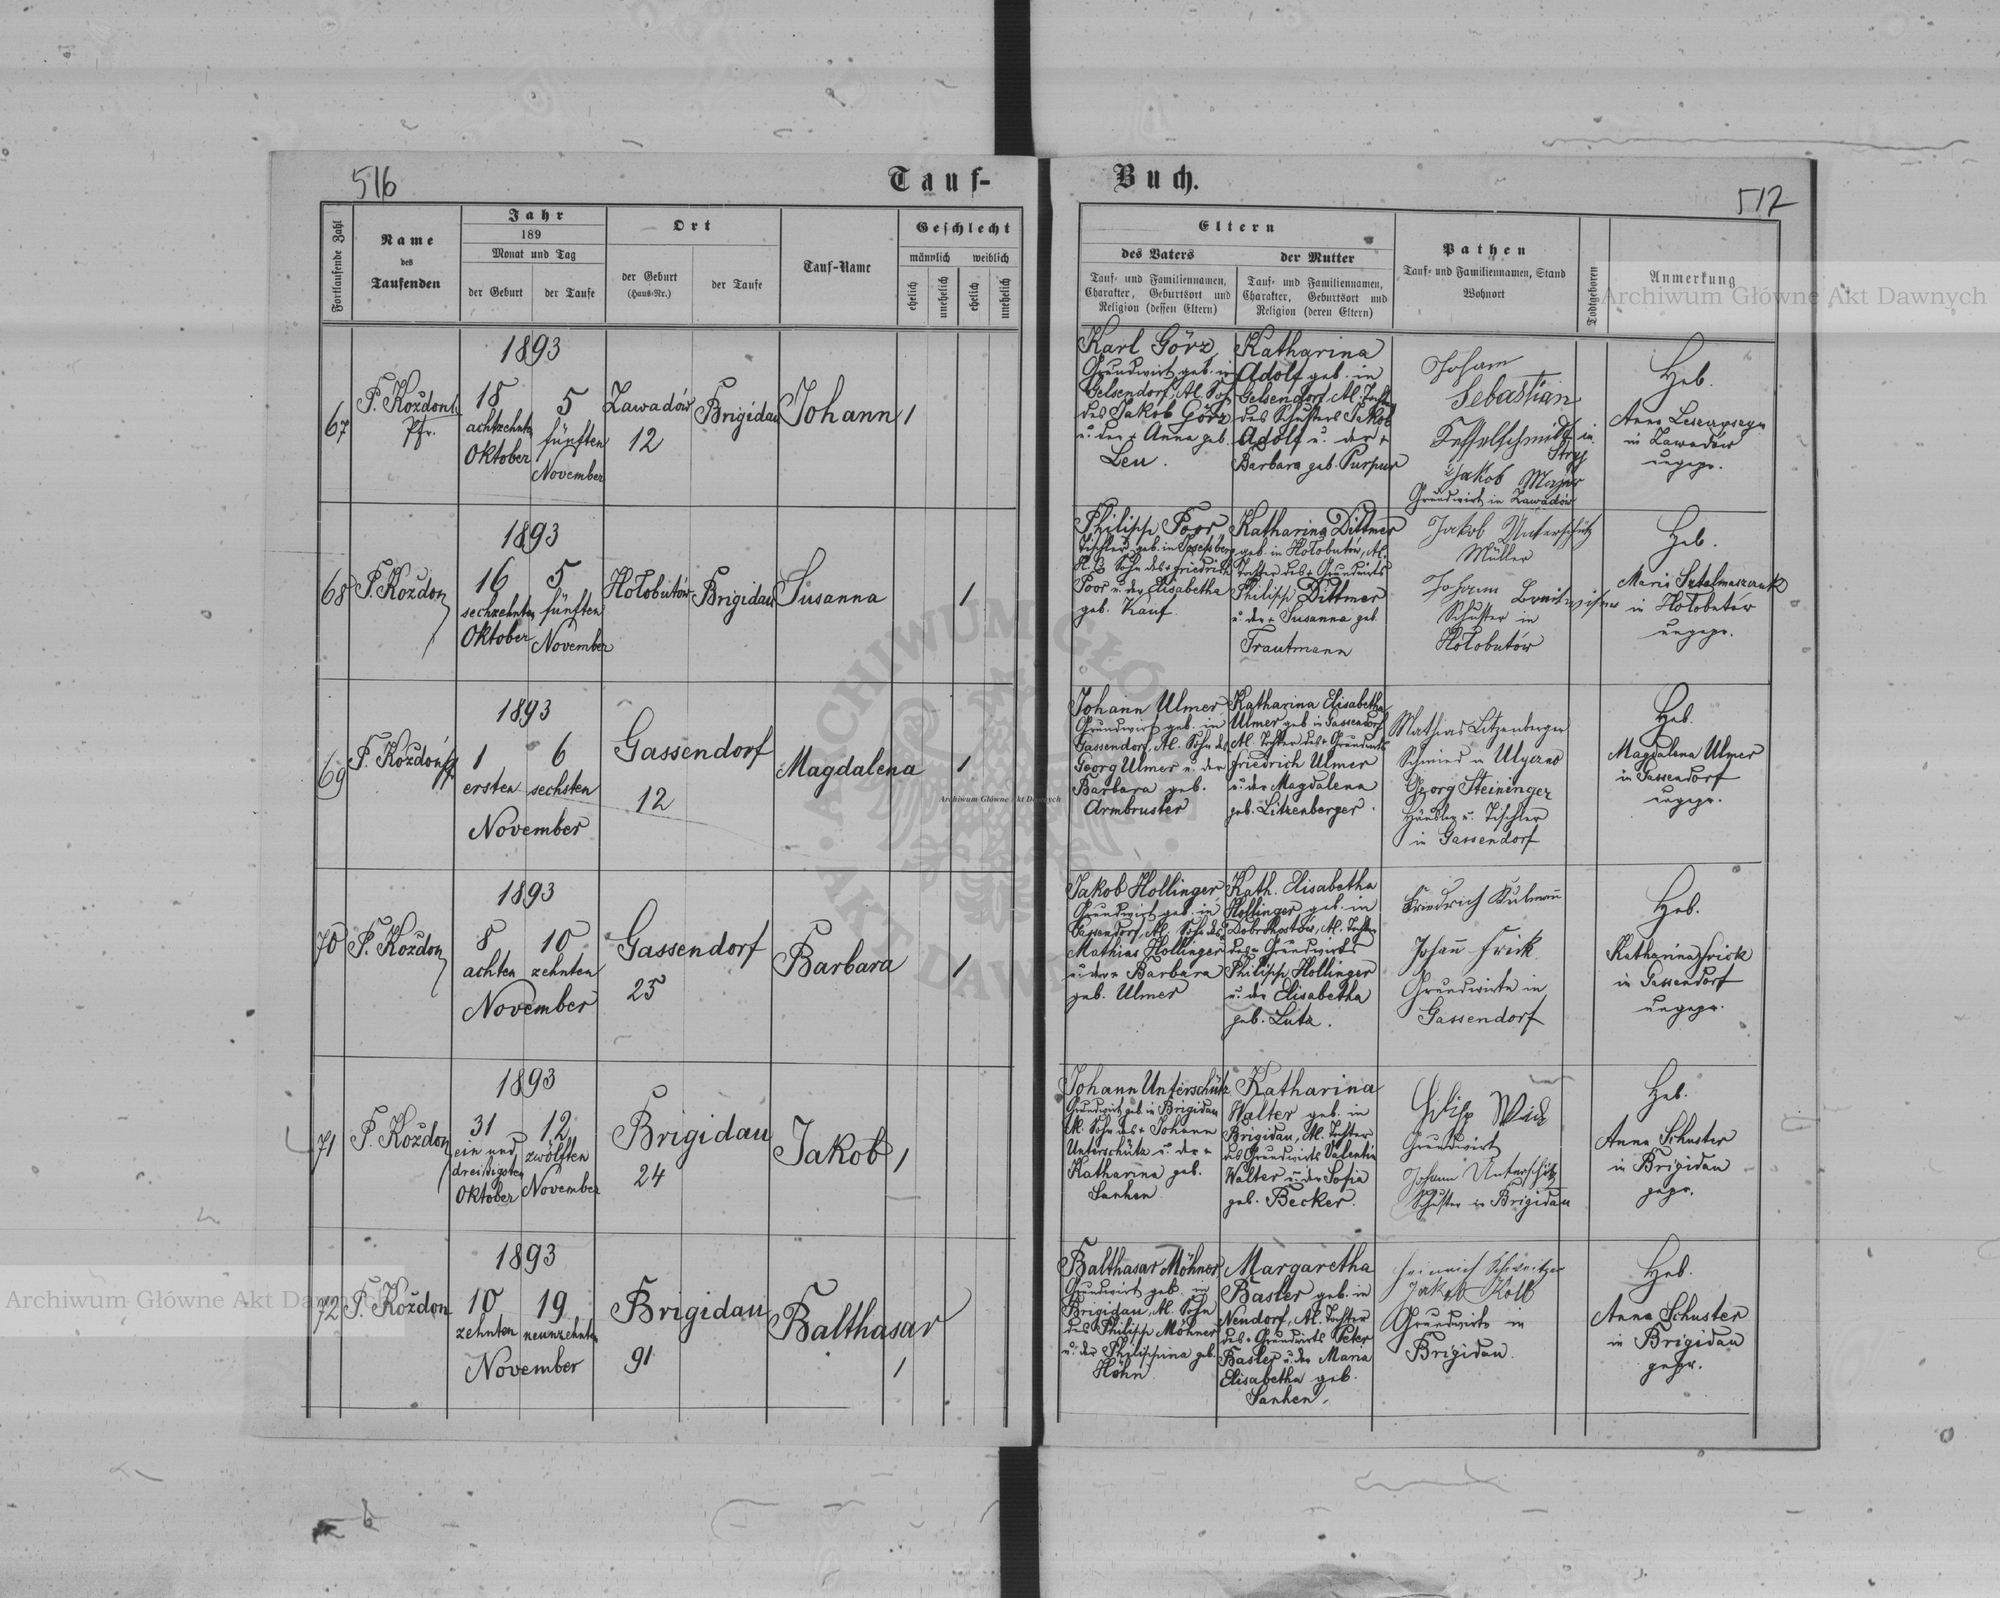 516
Tauf-
Buch.
517
Fortlaufende Zahl
Name
des
Taufenden
Jahr
189
Monat und Tag
der Geburt
der Taufe
Ort
der Geburt
(Haus-Nr.)
der Taufe
Tauf-Name
Geschlecht
männlich
weiblich
ehelich
unehelich
ehelich
unehelich
Eltern
des Vaters
Tauf- und Familiennamen,
Charakter, Geburtsort und
Religion (dessen Eltern)
der Mutter
Tauf- und Familiennamen,
Charakter, Geburtsort und
Religion (deren Eltern)
Pathen
Tauf- und Familiennamen, Stand
Wohnort
Todtgeboren
Anmerkung
67
P. Kożdoń
Pfr.
1893
18
achtzehnten
Oktober
5
fünften
November
Zawadów
12
Brigidau
Johann
1
Karl Görz
Grundwirt geb. in
Gelsendorf, Al. Sohn
des Jakob Görz
u. der + Anna geb.
Leu.
Katharina
Adolf geb. in
Gelsendorf Al. Tocht.
des Schusters Jakob
Adolf u. der +
Barbara geb. Purpur
Johann
Sebastian
Kesselschmidt in
Stryj
Jakob Majer
Grundwirt in Zawadów
Heb.
Anna
in Zawadów
ungepr.
68
P. Kożdoń
1893
16
sechzehnten
Oktober
5
fünften
November
Hołobutów
Brigidau
Susanna
1
Philipp Poor
Tischler geb. in Josefsberg
H. C. Sohn des + Friedrich
Poor u. der Elisabetha
geb. Kauf.
Katharina Dittmer
geb. in Hołobutów, Al.
Tochter des + Grundwirts
Philipp Dittmer
u. der + Susanna geb.
Trautmann
Jakob Unterschütz
Müller
Johann Breitwieser
Schuster in
Hołobutów
Heb.
Maria Sztelmaszczuk
in Hołobutów
ungepr.
69
P. Kożdoń
1893
1
ersten
6
sechsten
November
Gassendorf
12
Magdalena
1
Johann Ulmer
Grundwirt geb. in
Gassendorf, Al. Sohn des
Georg Ulmer u. der
Barbara geb.
Armbruster
Katharina Elisabetha
Ulmer geb. in Gassendorf
Al. Tochter des + Grundwirts
Friedrich Ulmer
u. der Magdalena
geb. Litzenberger.
Mathias Litzenberger
Schmied in Ulyczno
Georg Steininger
Häusler u. Tischler
in Gassendorf
Heb.
Magdalena Ulmer
in Gassendorf
ungepr.
70
P. Kożdoń
1893
8
achten
10
zehnten
November
Gassendorf
25
Barbara
1
Jakob Hollinger
Grundwirt geb. in
Gassendorf, Al. Sohn des
Mathias Hollinger
u. der + Barbara
geb. Ulmer
Kath. Elisabetha
Hollinger geb. in
Dobrohostów, Al. Tochter
des + Grundwirts
Philipp Hollinger
u. der Elisabetha
geb. Lutz.
Friedrich Kulmann
Johann Frick
Grundwirte in
Gassendorf
Heb.
Katharina Frick
in Gassendorf
ungepr.
71
P. Kożdoń
1893
31
ein und
dreißigsten
Oktober
12
zwölften
November
Brigidau
24
Jakob
1
Johann Unterschütz
Grundwirt geb. in Brigidau
Al. Sohn des + Johann
Unterschütz u. der +
Katharina geb.
Manhen
Katharina
Walter geb. in
Brigidau, Al. Tochter
des Grundwirts Valentin
Walter u. der Sofia
geb. Becker.
Grundwirt
Johann Unterschütz
Schuster in Brigidau
Heb.
Anna Schuster
in Brigidau
gepr.
72
P. Kożdoń
1893
10
zehnten
19
neunzehnten
November
Brigidau
91
Balthasar
1
Balthasar Möhner
Grundwirt geb. in
Brigidau, Al. Sohn
des Philipp Möhner
u. der Philippina geb.
Höhn
Margaretha
Basler geb. in
Neudorf, Al. Tochter
des + Grundwirts Peter
Basler u. der Maria
Elisabetha geb.
Manhen.
Heinrich Schweitzer
Jakob Kolb
Grundwirte in
Brigidau.
Heb.
Anna Schuster
in Brigidau
gepr.
Archiwum Główne Akt Dawnych
Archiwum Główne Akt Dawnych
Archiwum Główne Akt Dawnych